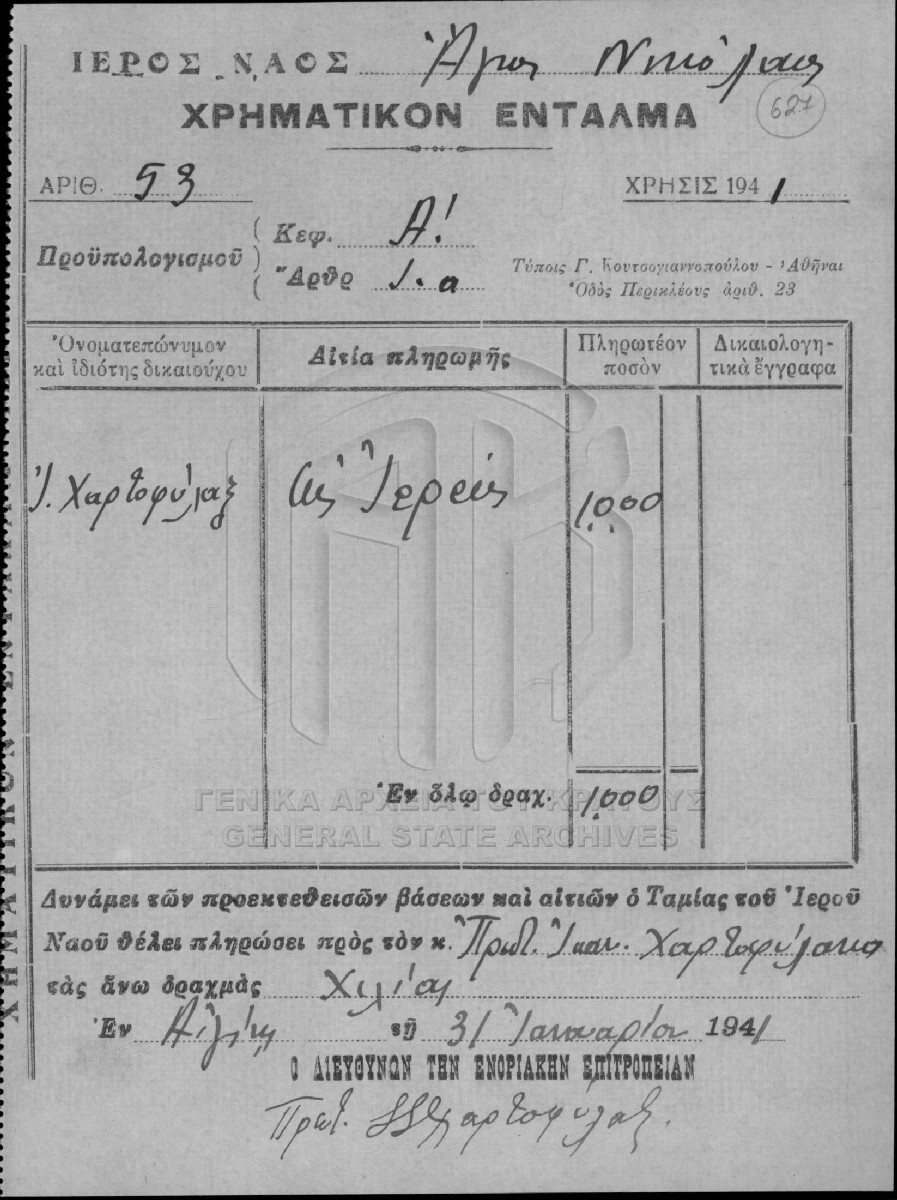 ΙΕΡΟΣ ΝΑΟΣ Ἅγιος Νικόλαος
ΧΡΗΜΑΤΙΚΟΝ ΕΝΤΑΛΜΑ
627
ΑΡΙΘ. 53
ΧΡΗΣΙΣ 1941
Προϋπολογισμοῦ
Κεφ. Α!
Ἄρθρ 1.α
Τύποις Γ. Κουτσογιαννοπούλου - Ἀθῆναι
Ὁδὸς Περικλέους ἀριθ. 23
Ὀνοματεπώνυμον
καὶ ἰδιότης δικαιούχου
Αἰτία πληρωμῆς
Πληρωτέον
ποσὸν
Δικαιολογη-
τικὰ ἔγγραφα
Ἰ. Χαρτοφύλαξ
Ὡς Ἱερεὺς
1000
Ἐν ὅλῳ δραχ. 1000
ΓΕΝΙΚΑ ΑΡΧΕΙΑ ΤΟΥ ΚΡΑΤΟΥΣ
GENERAL STATE ARCHIVES
Δυνάμει τῶν προεκτεθεισῶν βάσεων καὶ αἰτιῶν ὁ Ταμίας τοῦ Ἱεροῦ
Ναοῦ θέλει πληρώσει πρὸς τὸν κ. Πρωτ. Ἰωαν. Χαρτοφύλακα
τὰς ἄνω δραχμὰς Χιλίας
Ἐν Αἰγίνῃ τῇ 31 Ἰανουαρίου 1941
Ο ΔΙΕΥΘΥΝΩΝ ΤΗΝ ΕΝΟΡΙΑΚΗΝ ΕΠΙΤΡΟΠΕΙΑΝ
Πρωτ. Χαρτοφύλαξ.
ΧΡΗΜΑΤΙΚΟΝ ΕΝΤΑΛΜΑ